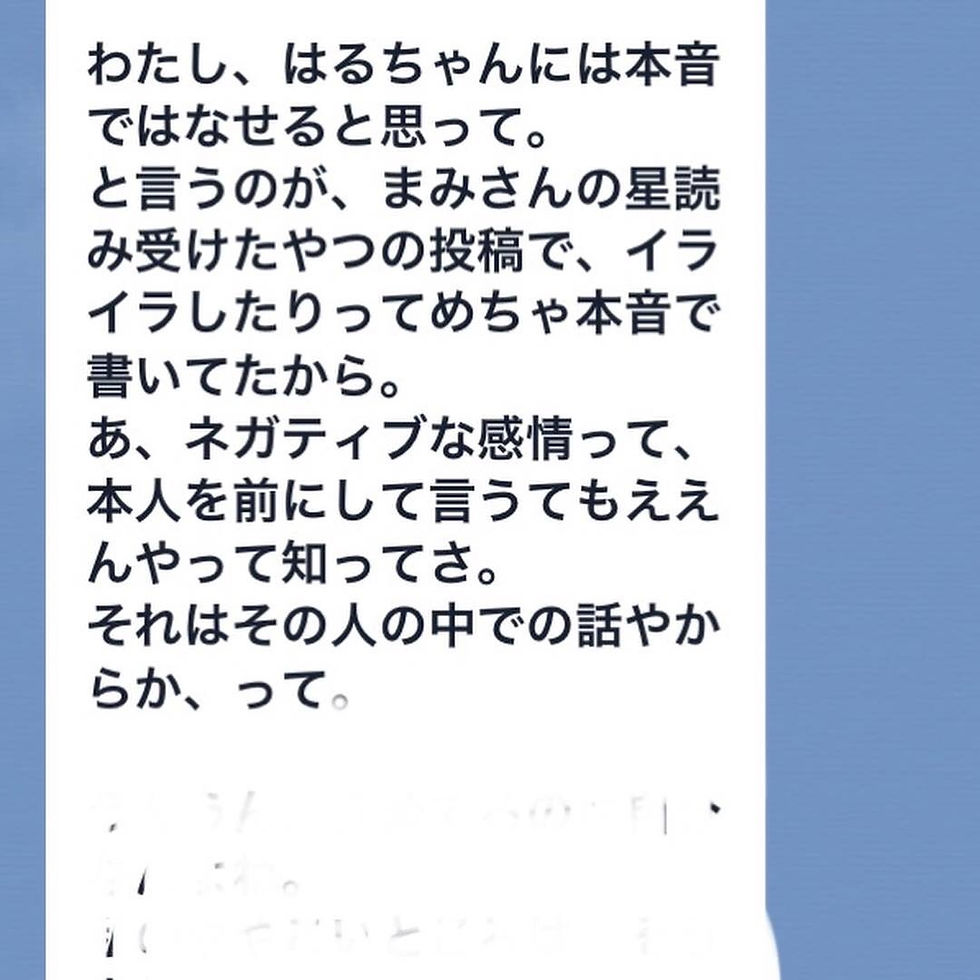 わたし、はるちゃんには本音
ではなせると思って。
と言うのが、まみさんの星読
み受けたやつの投稿で、イラ
イラしたりってめちゃ本音で
書いてたから。
あ、ネガティブな感情って、
本人を前にして言うてもええ
んやって知ってさ。
それはその人の中での話やか
らか、って。